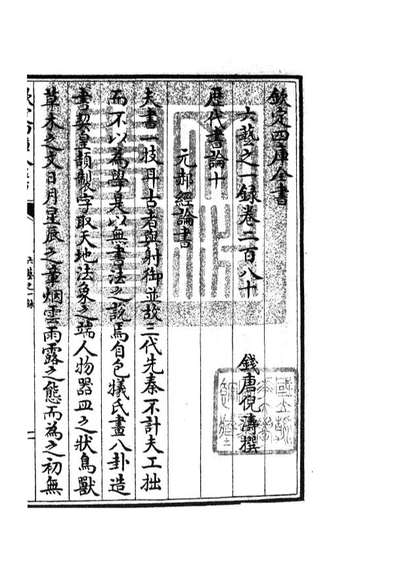 欽定四庫全書
六藝之一録卷二百八十
錢唐倪濤撰
歴代書論十
元郝經論書
夫書一技耳古者與射御並故三代先秦不計夫工拙
而不以為學是以無書法之説焉自包犧氏畫八卦造
書契皇頡製字取天地法象之端人物器皿之狀鳥獸
草木之文日月星辰之章烟雲雨露之態而為之初無
六藝之一録